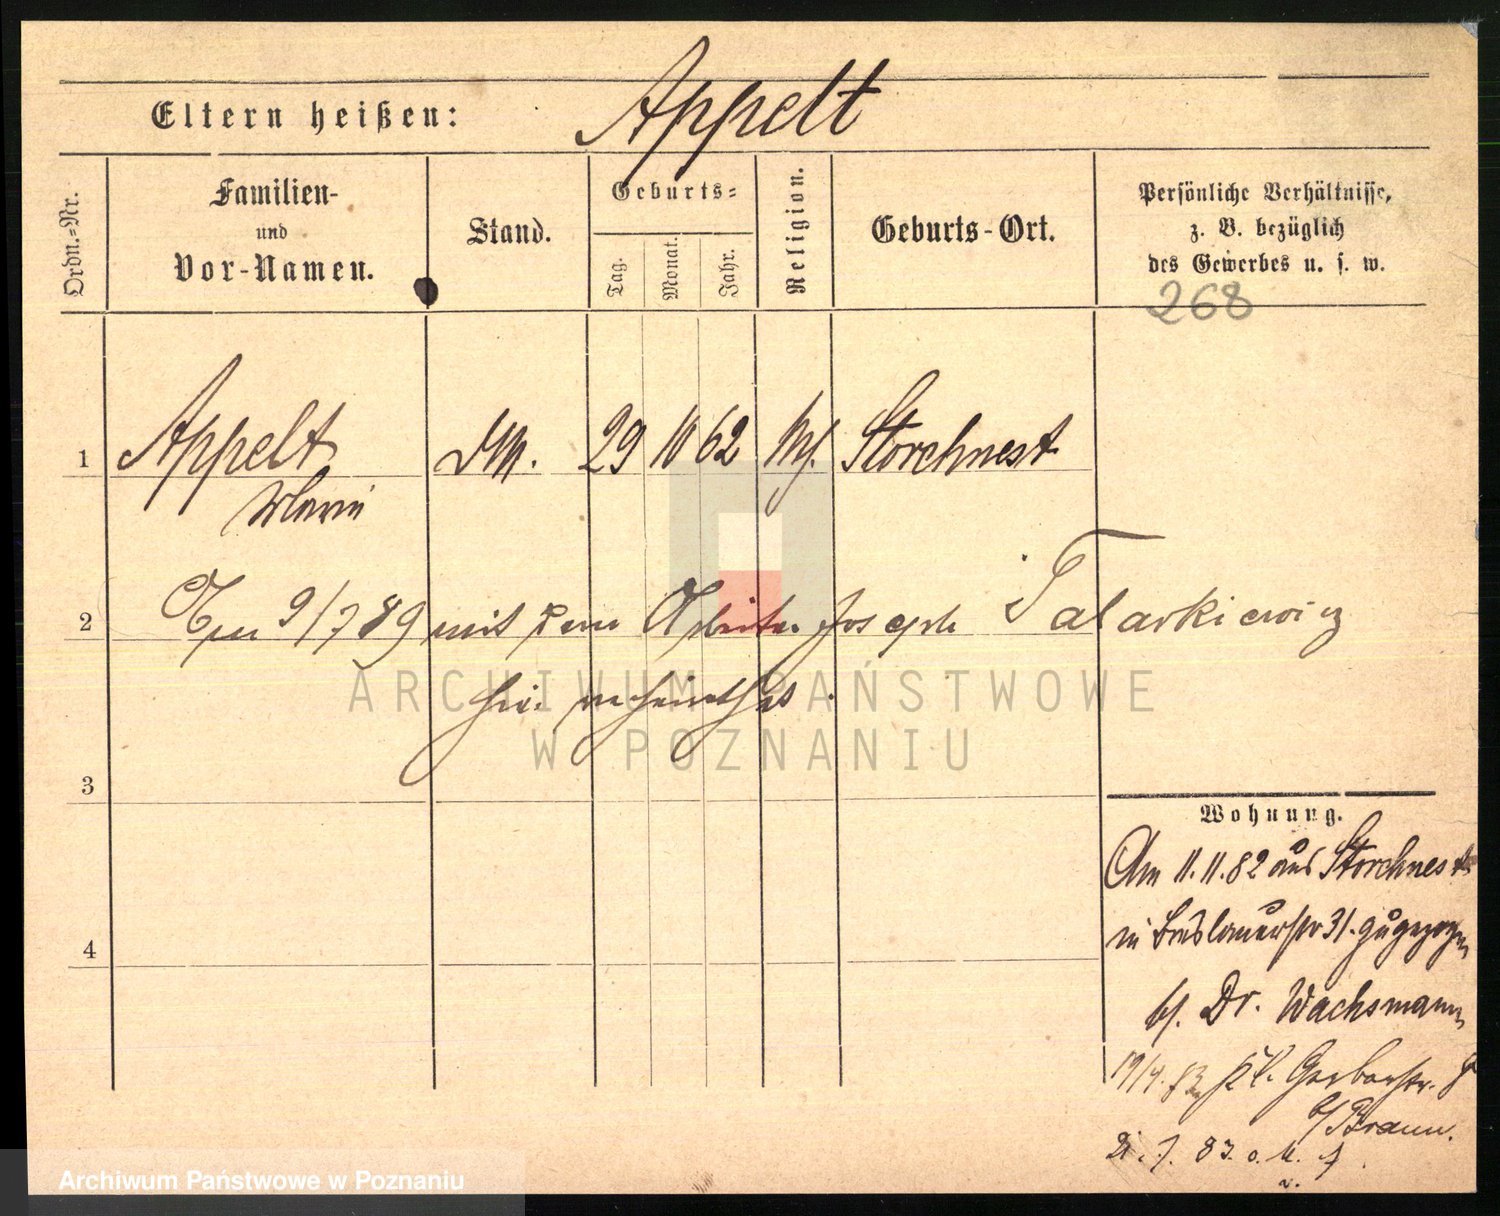 Eltern heißen: Appelt
Ordn.=Nr.
Familien-
und
Vor-Namen.
Stand.
Geburts=
Tag.
Monat.
Jahr.
Religion.
Geburts-Ort.
Persönliche Verhältnisse,
z. B. bezüglich
des Gewerbes u. s. w.
268
1 Appelt 29 10 62 Storchnest
Marie
2 Am 9/7 89 mit dem Arbeiter Joseph Talarkiewicz
hier verheirathet.
3
4
Wohnung.
Am 11.11.82 aus Storchnest
in Breslauerstr 31. zugezogen
b/. Dr. Wachsmann
19/4. 83 Kl. Gerberstr.
b/ Braun.
ARCHIWUM PAŃSTWOWE
W POZNANIU
Archiwum Państwowe w Poznaniu